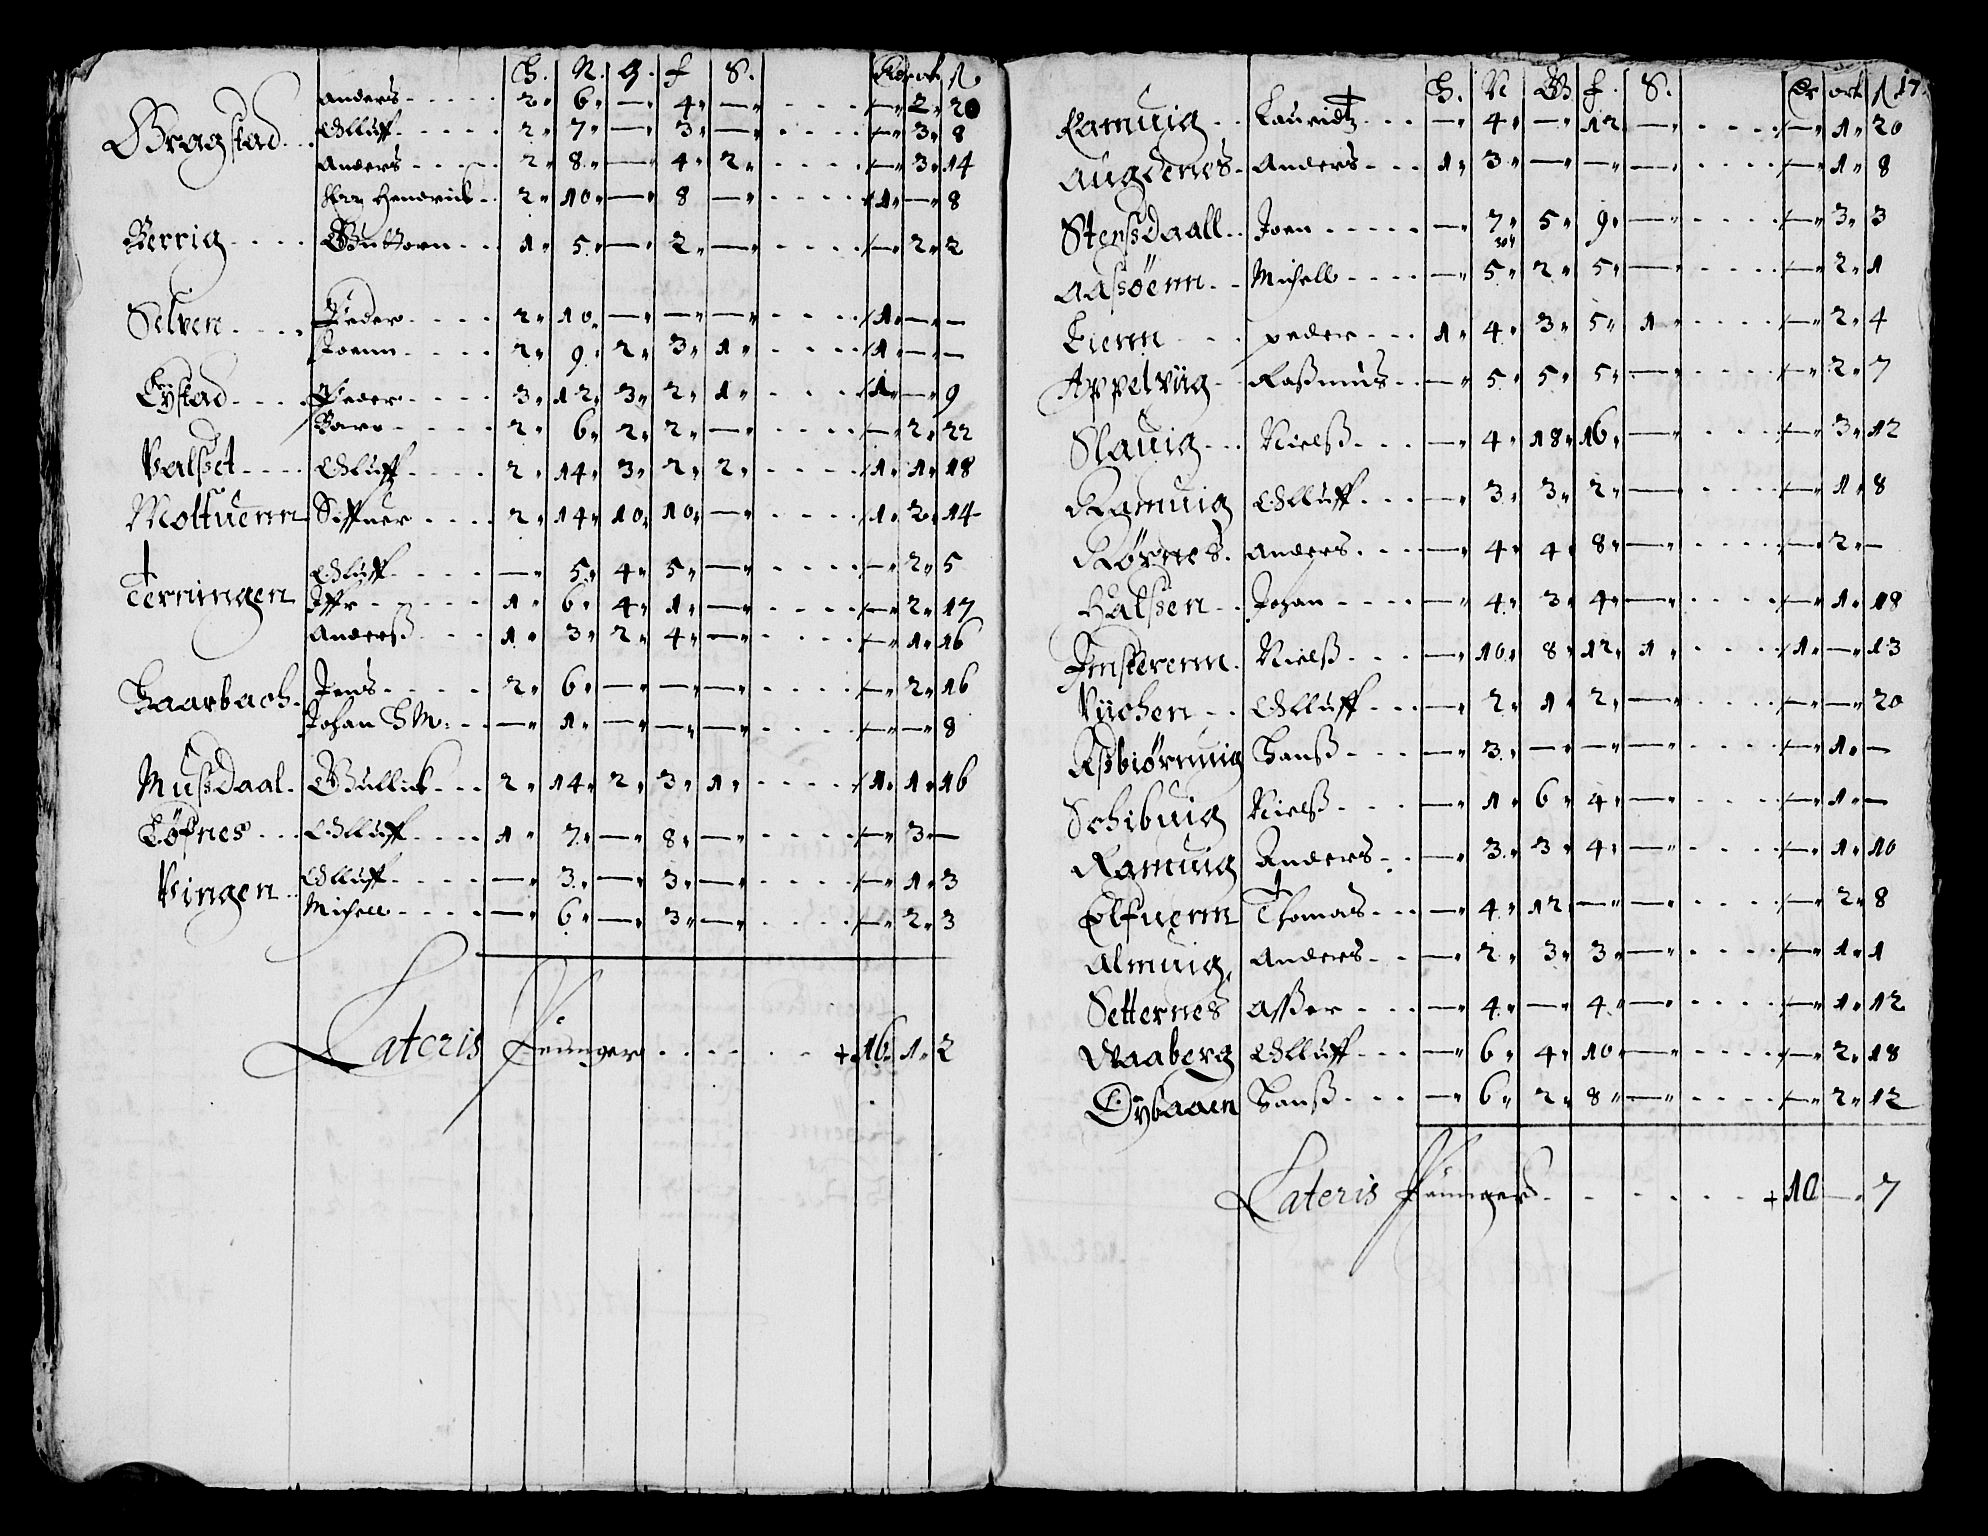 H. N. G. f S. ort ß
Bragstad Anders 2 6 — 4 — — 2 20
Olluff 2 7 — 3 — — 3 8
Anders 2 8 — 4 2 — 3 14
Hendrich 2 10 — 8 — 1 — 8
Berrig Guttorn 1 5 — 2 — — 2 2
Selven Peder 2 10 — — — 1 — —
Joenn 2 9 2 3 1 1 — —
Eystad Peder 3 12 3 2 1 1 — 9
Baro 2 6 2 2 — — 2 22
Valset Olluff 2 14 3 2 2 1 1 18
Moltuenn Siffuer 2 14 10 10 — 1 2 14
Terningen Olluff — 5 4 5 — — 2 5
Iffr 1 6 4 1 — — 2 17
Anderß 1 3 2 4 — — 1 16
Baarbach Jens 2 6 — — — — 2 16
Johan HM: — 1 — — — — — 8
Mußdaal Gullich 2 14 2 3 1 1 1 16
Løfnes Olluff 1 7 — 8 — — 3 —
Vingen Olluff — 3 — 3 — — 1 3
Michell — 6 — 3 — — 2 3
Lateris Penninger + 16 1 2
H. N G f. S. Dr ort ß 17.
Ramuig Lauridtz — 4 — 12 — — 1 20
Augdenes Anders 1 3 — — — — 1 8
Stenßdaall Joen — 7 5 9 — — 3 3
Aaßøenn Michell — 5 2 5 — — 2 1
Lienn peder 1 4 3 5 1 — 2 4
Appelviig Raßmus — 5 5 5 — — 2 7
Slauig Nielß — 4 18 16 — — 3 12
Ramuig Olluff — 3 3 2 — — 1 8
Anders — 4 4 8 — — 2 —
Halßen Johan — 4 3 4 — — 1 18
Nielß — 10 8 12 1 1 — 13
Viichen Olluff — 2 1 2 — — — 20
Aßbiørnuig Hanß — 3 — — — — 1 —
Schibuig Nielß — 1 6 4 — — 1 —
Ramuig Anders — 3 3 4 — — 1 10
Elfuenn Thomas — 4 12 — — — 2 8
Almuig Anders — 2 3 3 — — 1 1
Setternes Aßer — 4 — 4 — — 1 12
Vaaberg Olluff — 6 4 10 — — 2 18
Hanß — 6 2 8 — — 2 12
Lateris Penninger + 10 — 7